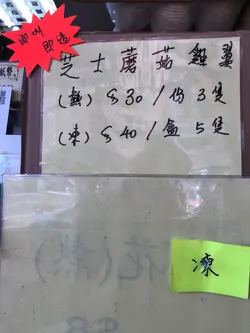 即叫
即造
芝士蘑菇雞翼
(熱) $30/份 3隻
(凍) $40/盒 5隻
花(熱)
凍